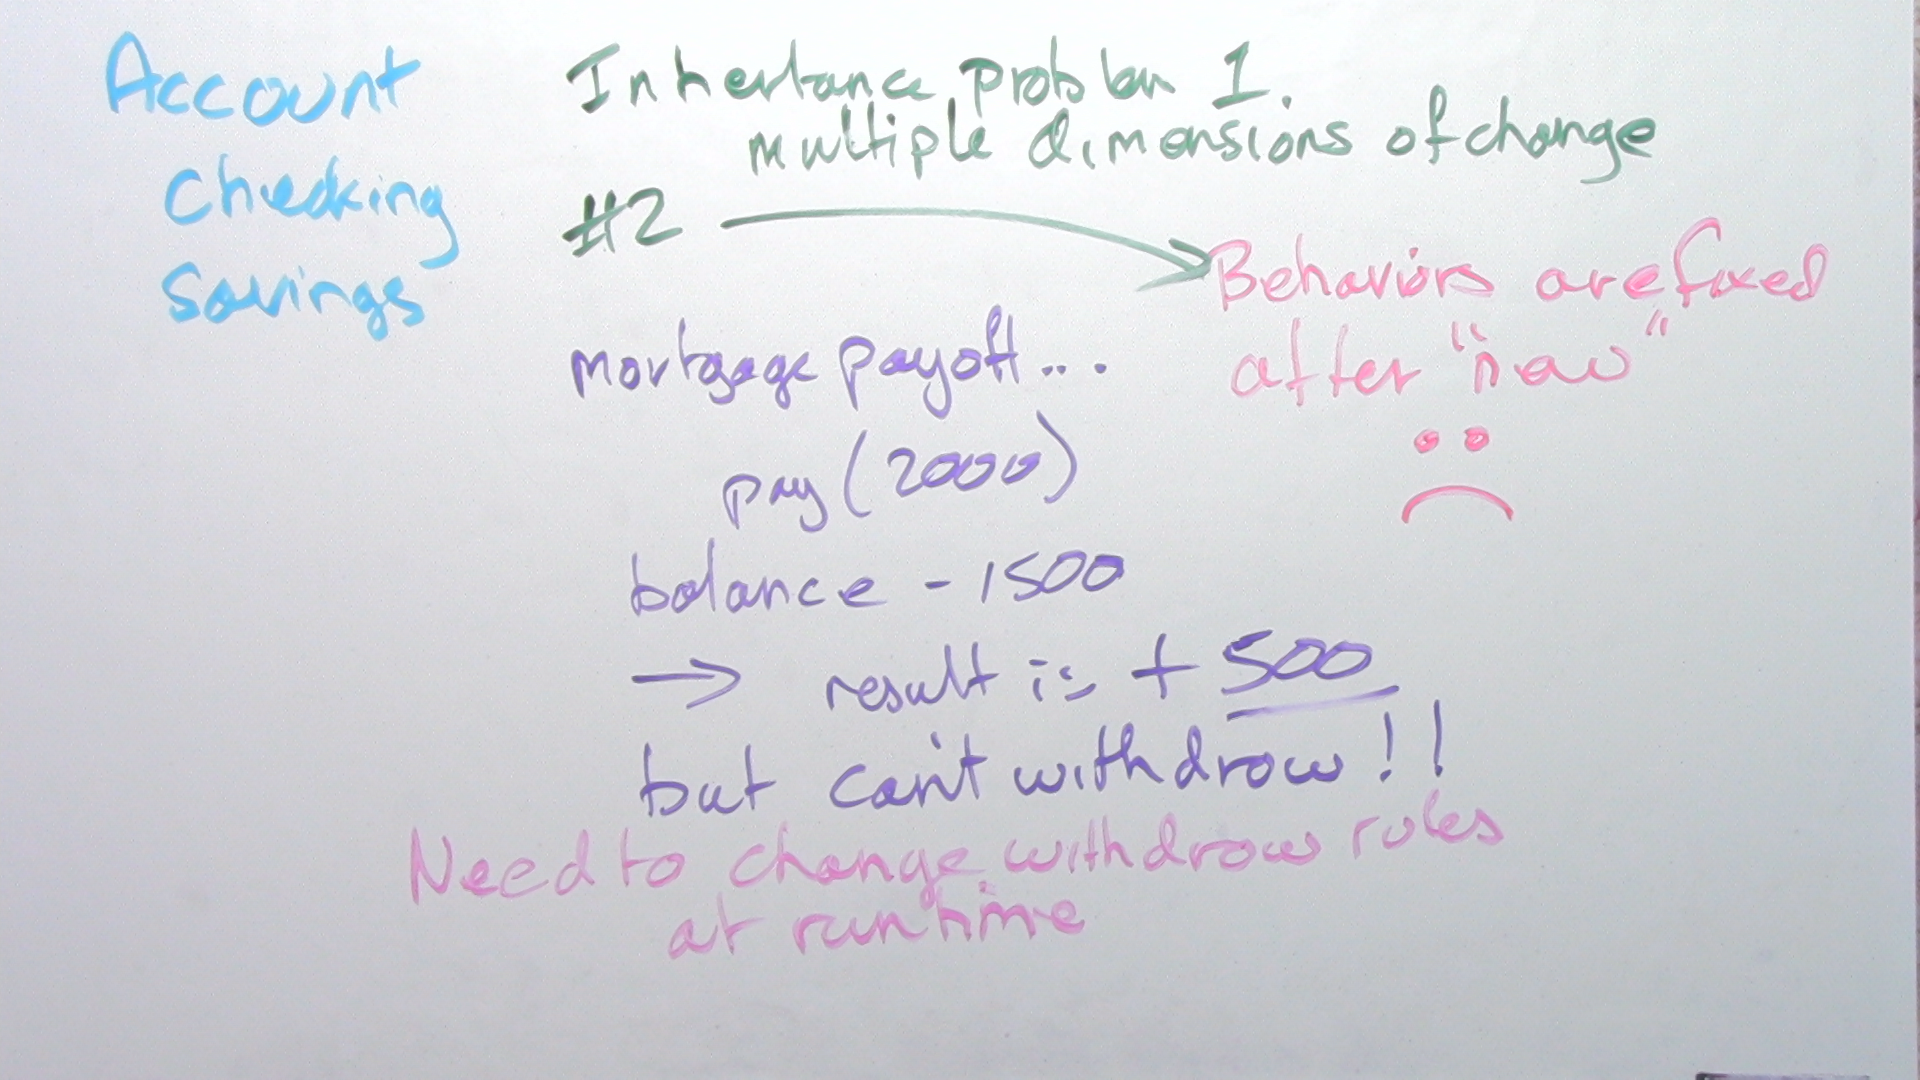 Account
Checking
Savings
Inheritance problem 1.
multiple dimensions of change
#2
Behaviors are fixed
after "new"
mortgage payoff...
pay (2000)
balance - 1500
→ result is + 500
but can't withdraw!!
Need to change withdraw rules
at runtime